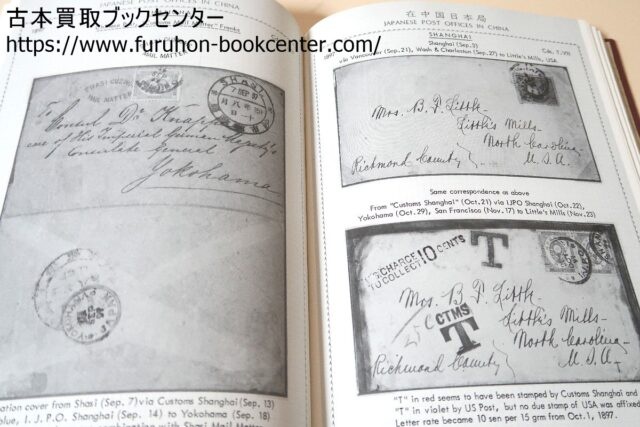 古本買取ブックセンター
https://www.furuhon-bookcenter.com/
JAPANESE POST OFFICES IN CHINA
MAIL MATTER
SHASI
To Consul Dr Knapp
care of His Imperial German Majesty's
Consulate General
Yokohama
ation cover from Shasi (Sep. 7) via Customs Shanghai (Sep. 13)
blue, I. J. P.O. Shanghai (Sep. 14) to Yokohama (Sep. 18)
在中国日本局
JAPANESE POST OFFICES IN CHINA
SHANGHAI
1897
Shanghai (Sep. 3)
via Vancouver (Sep. 21), Wash & Charleston (Sep. 27) to Little's Mills, USA
Mrs. B. F. Little
Little's Mills
North Carolina
Richmond County
U.S.A.
Same correspondence as above
From "Customs Shanghai" (Oct. 21) via IJPO Shanghai (Oct. 22),
Yokohama (Oct. 29), San Francisco (Nov. 17) to Little's Mills (Nov. 23)
U.S. CHARGE
TO COLLECT 10 CENTS
T
Mrs. B. F. Little
CTMS
T
Little's Mills
North Carolina
Richmond County
U.S.A.
"T" in red seems to have been stamped by Customs Shanghai and
"T" in violet by US Post, but no due stamp of USA was affixed
Letter rate became 10 sen per 15 grm from Oct. 1, 1897.